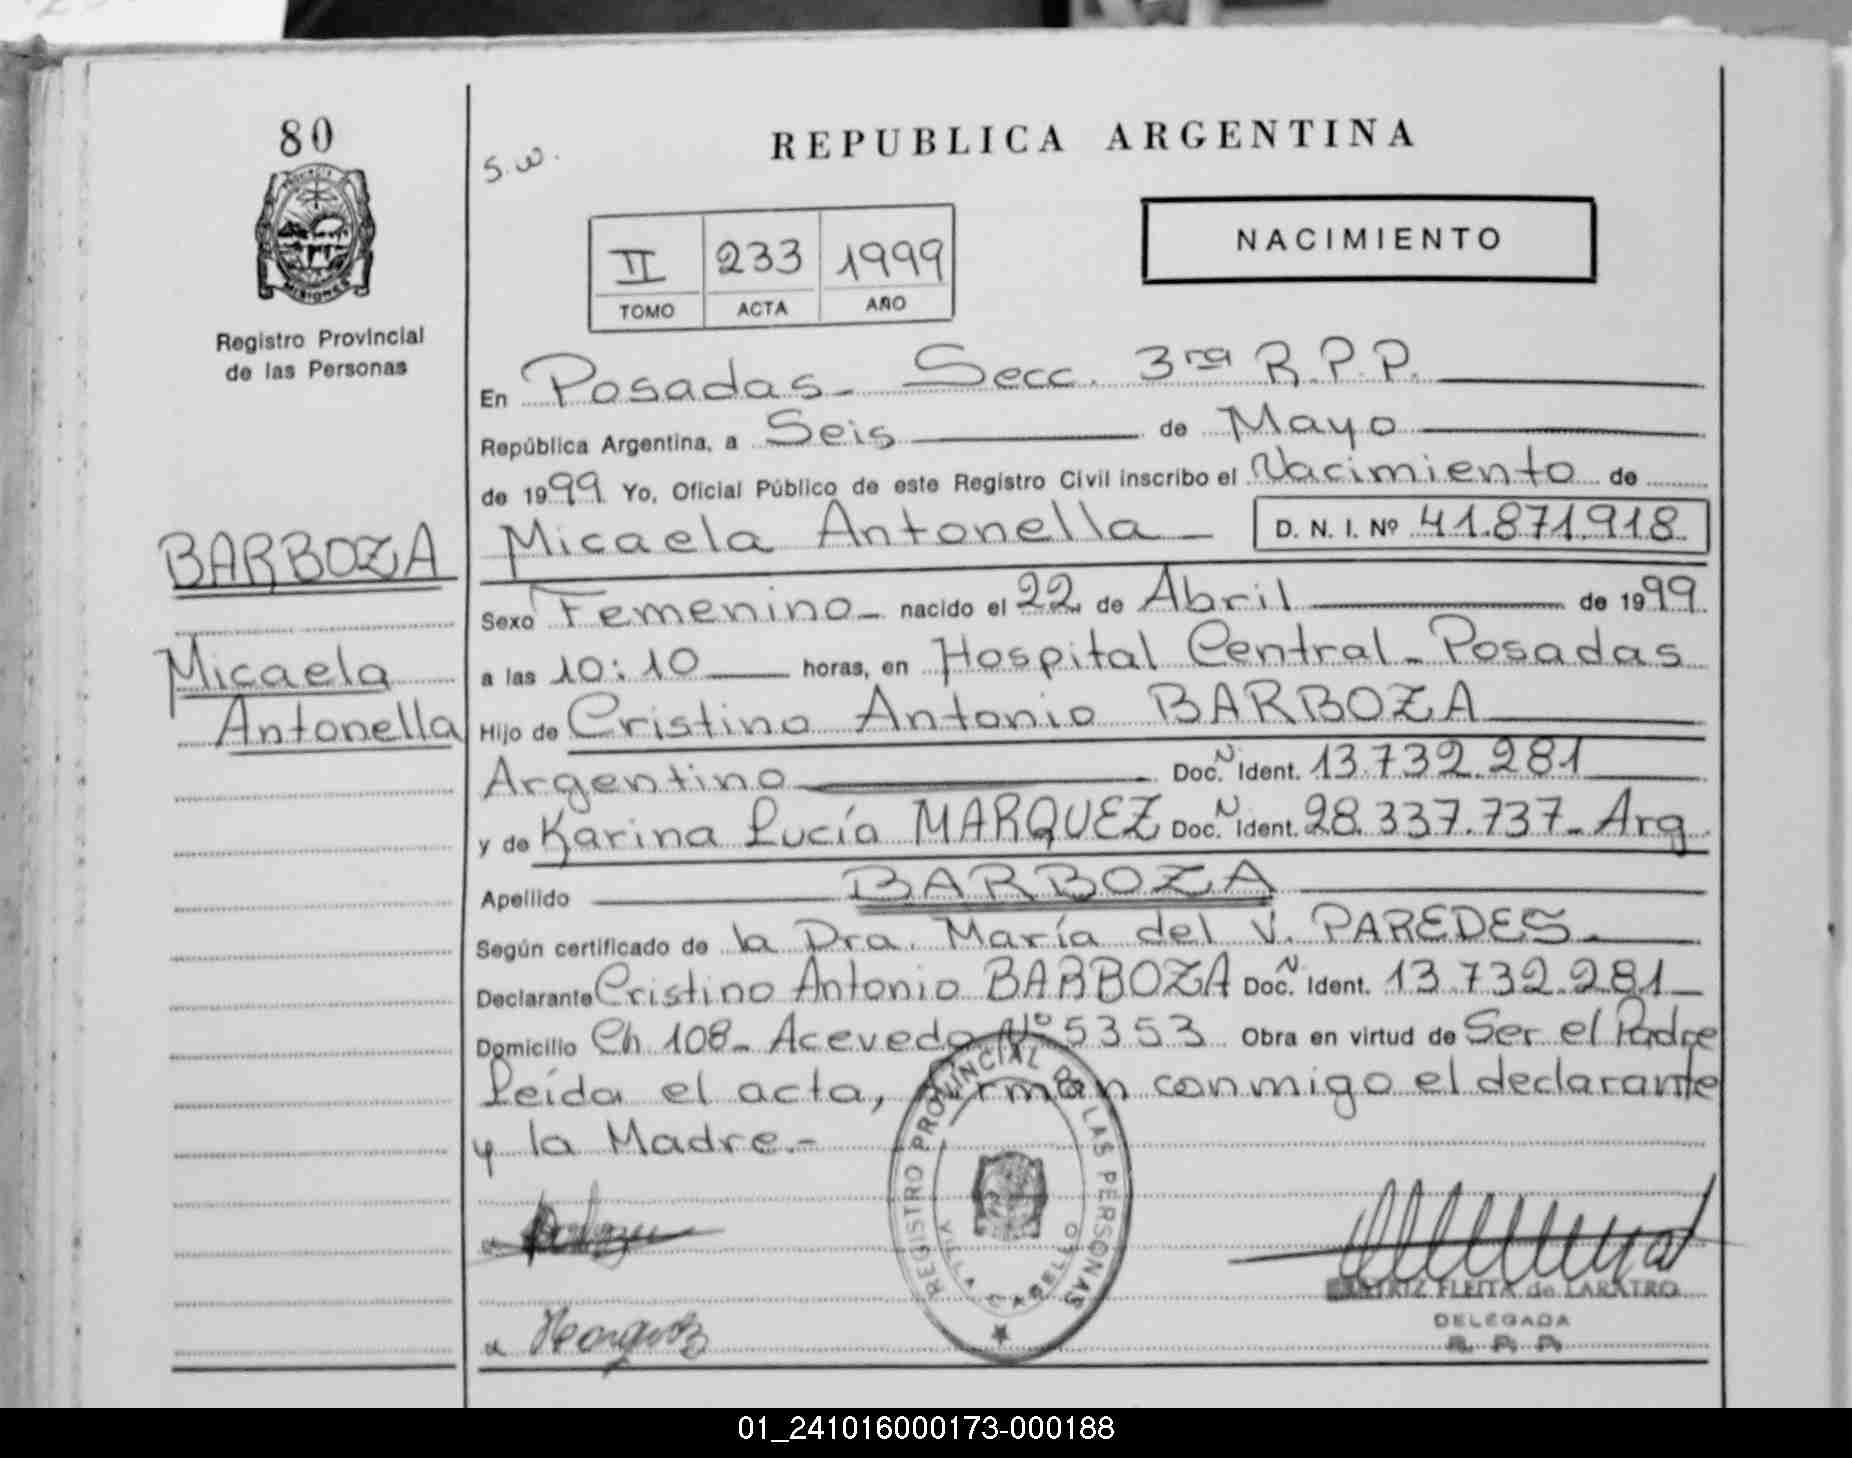 80
PROVINCIA
MISIONES
Registro Provincial
de las Personas
BARBOZA
Micaela
Antonella
S.W.
REPUBLICA ARGENTINA
II 233 1999
TOMO ACTA AÑO
NACIMIENTO
En Posadas - Secc. 3ra R.P.P.
República Argentina, a Seis de Mayo
de 1999 Yo, Oficial Público de este Registro Civil inscribo el Nacimiento de
Micaela Antonella - D. N. I. Nº 41.871.918
Sexo Femenino - nacido el 22 de Abril de 1999
a las 10:10 horas, en Hospital Central - Posadas
Hijo de Cristino Antonio BARBOZA
Argentino Doc. N Ident. 13.732.281
y de Karina Lucía MARQUEZ Doc. N Ident. 28.337.737 - Arg.
Apellido BARBOZA
Según certificado de la Dra. María del V. PAREDES
Declarante Cristino Antonio BARBOZA Doc. N Ident. 13.732.281
Domicilio Ch 108 - Acevedo Nº 5353 Obra en virtud de Ser el Padre
Leída el acta, firman conmigo el declarante
y la Madre.-
REGISTRO PROVINCIAL DE LAS PERSONAS
VILLA CABELLO
FLEITA de LARATRO
DELEGADA
R. P. P.
01_241016000173-000188